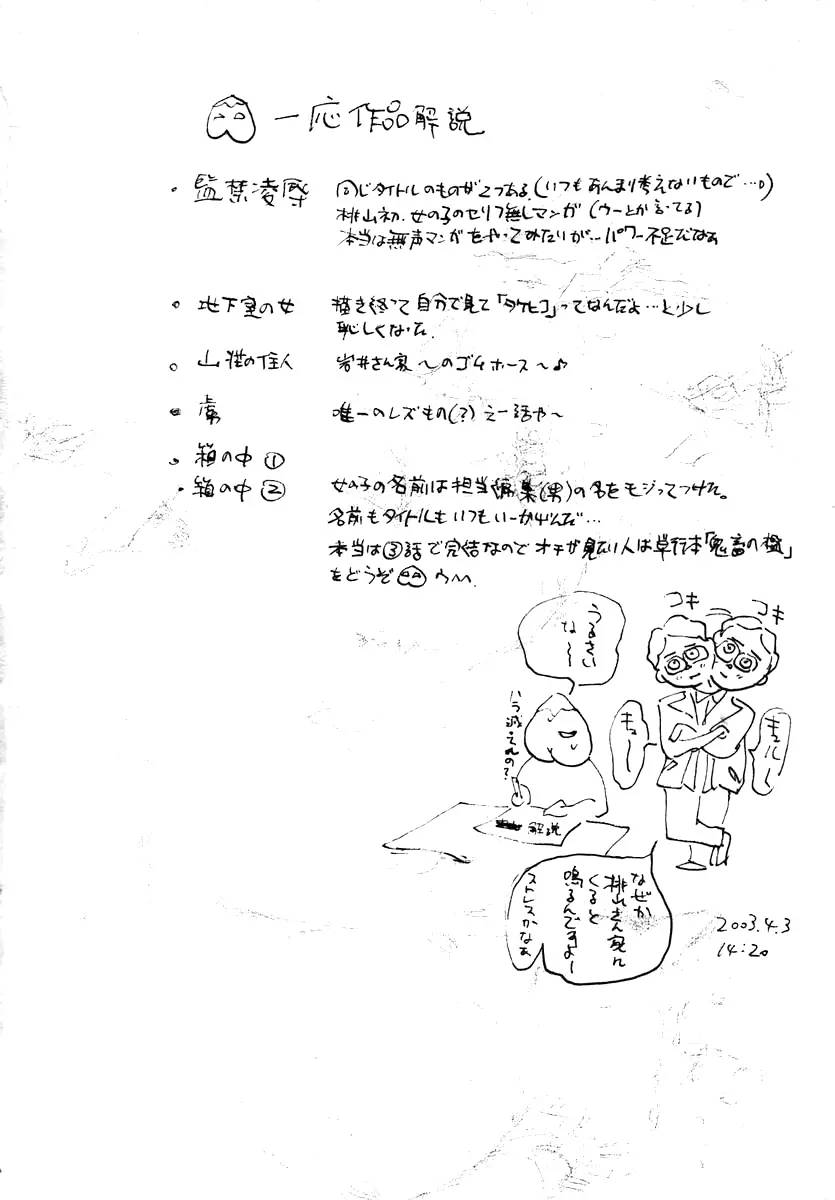 一応作品解説
・監禁凌辱
同じタイトルのものが2つある.(いつもあんまり考えないもので…。)
桃山初.女の子のセリフ無しマンガ(ウーとか言ってる)
本当は無声マンガをやってみたいが…パワー不足だなぁ
・地下室の女
描き終って自分で見て「タケヒコ」ってなんだよ…と少し
恥しくなった
・山荘の住人
岩井さん家〜のゴムホース〜♪
・虜
唯一のレズもの(?)え一話や〜
・箱の中①
・箱の中②
女の子の名前は担当編集(男)の名をモジってつけた。
名前もタイトルもいつもいーかげんだ…
本当は③話で完結なのでオチが見たい人は単行本「鬼畜の檻」
をどうぞ
コキ
コキ
うるさい
な〜〜
ハラ減ってんの?
キュ〜
キュル〜
解説
なぜか
桃山さん家に
くると
鳴るんですよ〜
ストレスかなぁ
2003.4.3
14:20